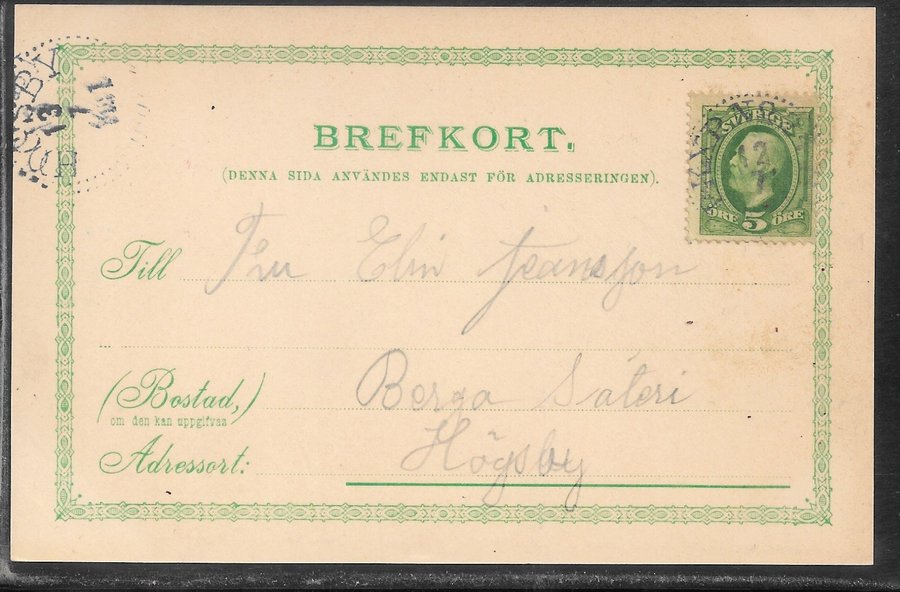 BREFKORT.
(DENNA SIDA ANVÄNDES ENDAST FÖR ADRESSERINGEN).
SVERIGE
12
ÖRE 5 ÖRE
HÖGSBY
13
1
Till Fru Elin Jeansson
(Bostad,) Berga Säteri
om den kan uppgifvas
Adressort: Högsby